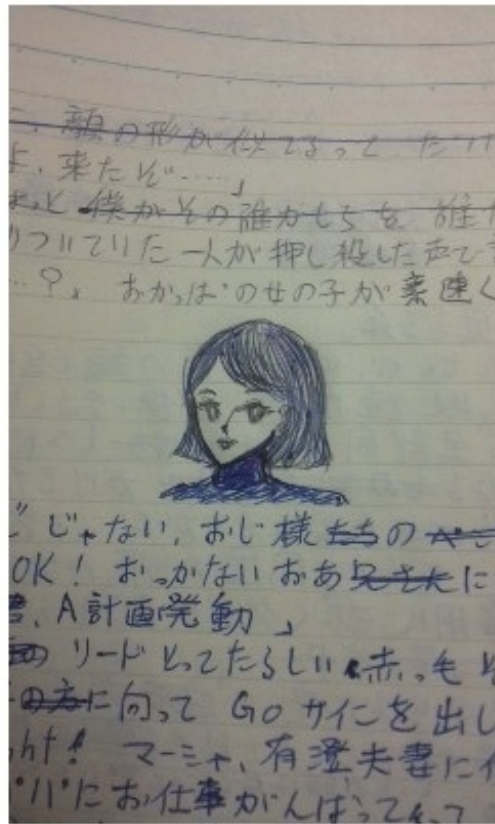 、顔の形が似てるって だけ
よ、来たぞ……」
僕がその誰かたちを 誰
りついていた一人が押し殺した声で
…？」 おかっぱの女の子が素速く
じゃない、おじ様たちの
OK！ おっかないおあ兄さんに
、A計画発動」
リードとってたらしい 赤っ毛
の方に向って Goサインを出し
ht！ マーシャ、有澄夫妻に
にお仕事がんばってって